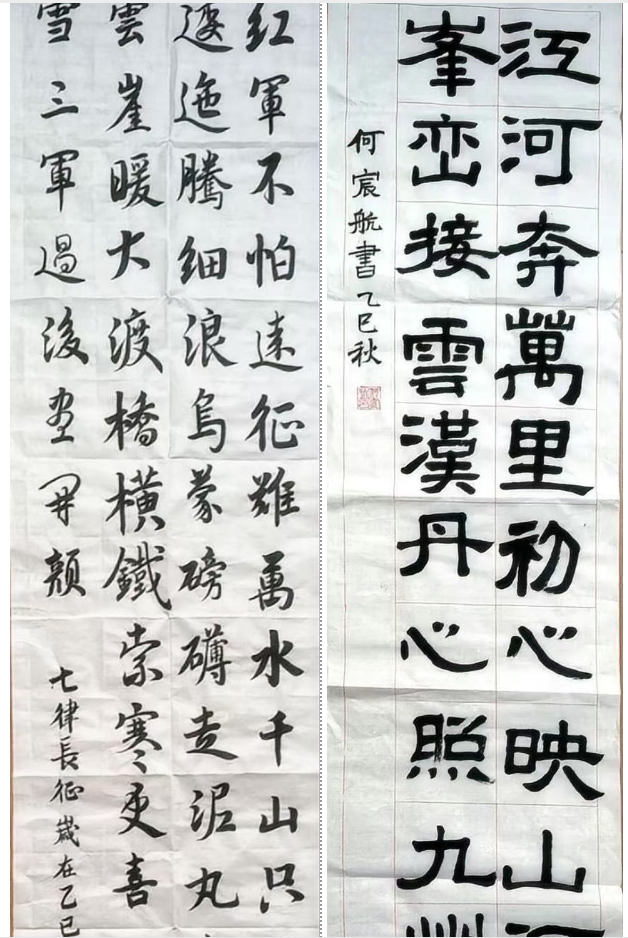 红軍不怕遠征難萬水千山只
逶迤騰细浪烏蒙磅礴走泥丸
雲崖暖大渡橋橫鐵索寒更喜
雪三軍過後盡開顏
七律長征歲在乙巳
江河奔萬里初心映山
峯峦接雲漢丹心照九
何宸航書乙巳秋